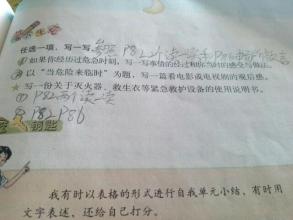 任选一项，写一写。参照P82 2个读一读和P86
如果你经历过危急时刻，写一写事情的经过和你当时的感受与做法。
以“当危险来临时”为题，写一篇看电影或电视剧的观后感。
★ 写一份关于灭火器、救生衣等紧急救护设备的使用说明书。
① P82两个读一读
② P82 P86
钥匙
我有时以表格的形式进行自我单元小结，有时用
文字表述，还给自己打分。